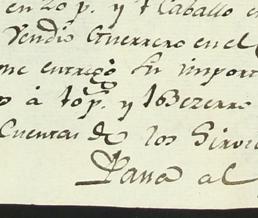 en 20 p. y 1 Caballo e
Vendio Guerrero en el
me entregó su import
à 10 p. y 1 Bezerro
Cuentas de los Sirvi
Passa al